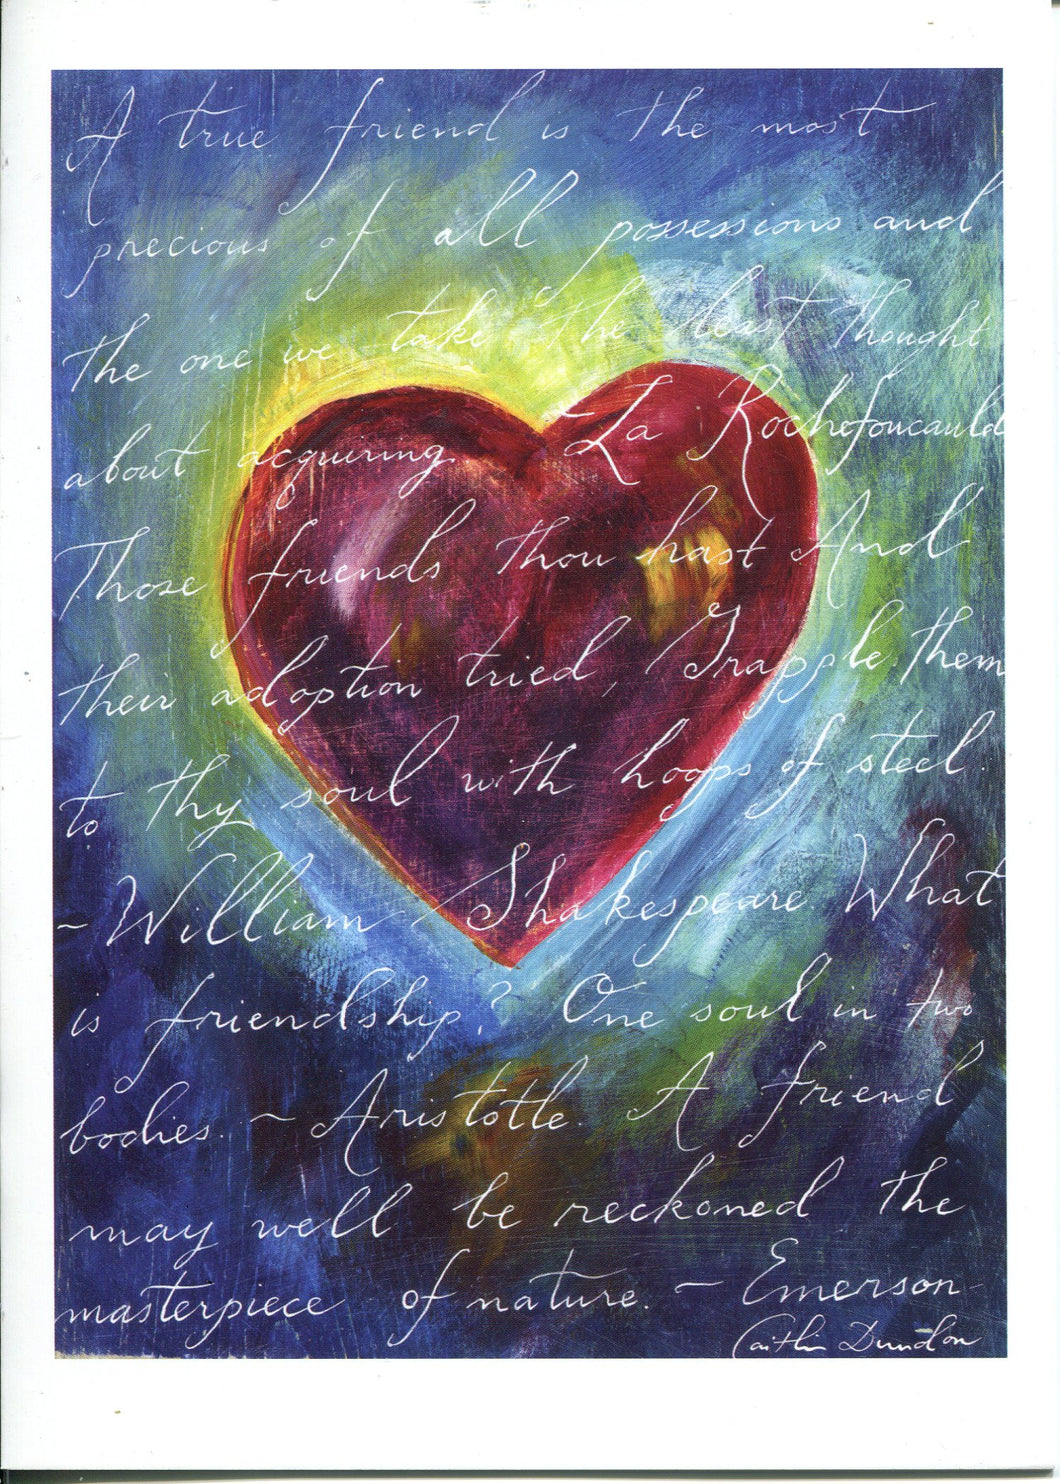 A true friend is the most
precious of all possessions and
the one we take the least thought
about acquiring. La Rochefoucauld
Those friends thou hast And
their adoption tried, Grapple them
to thy soul with hoops of steel.
~ William Shakespeare. What
is friendship? One soul in two
bodies. ~ Aristotle. A friend
may well be reckoned the
masterpiece of nature. ~ Emerson
Caitlin Dundon